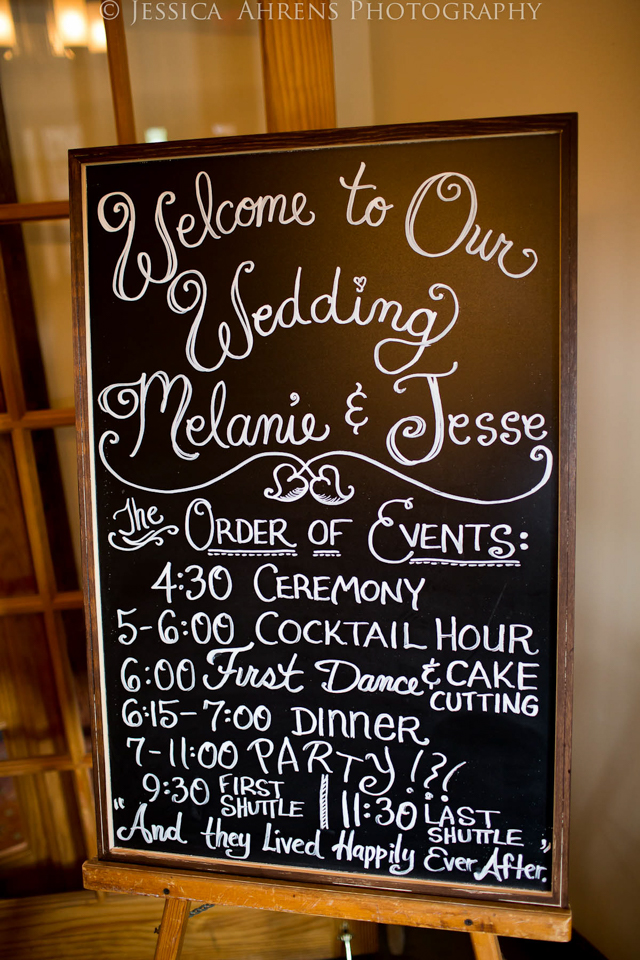 © Jessica Ahrens Photography
Welcome to Our
Wedding
Melanie & Jesse
The Order of Events:
4:30 Ceremony
5-6:00 Cocktail Hour
6:00 First Dance & Cake Cutting
6:15-7:00 Dinner
7-11:00 Party!?!
9:30 First Shuttle | 11:30 Last Shuttle
"And they Lived Happily Ever After."